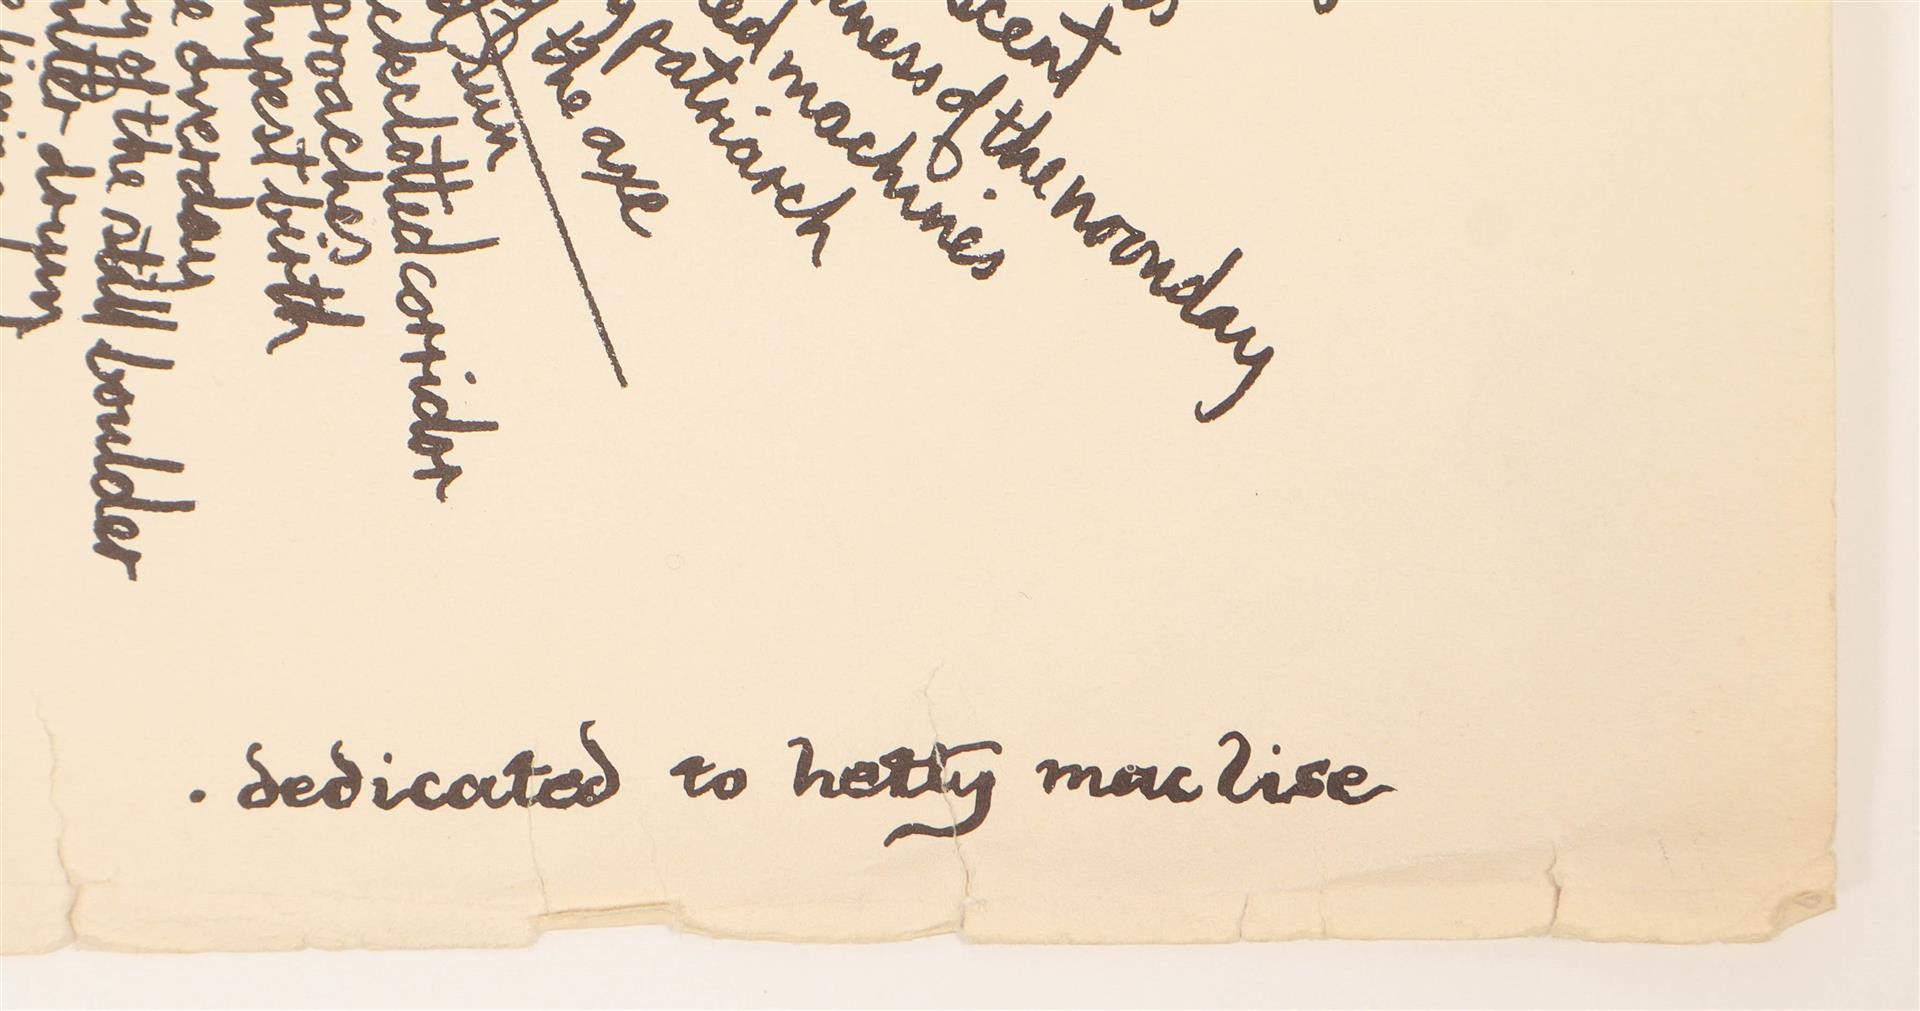 cent
ness of the noonday
ed machines
patriarch
the axe
Sun
clotted corridor
proaches
pest birth
overday
of the still boulder
. dedicated to hetty maclise